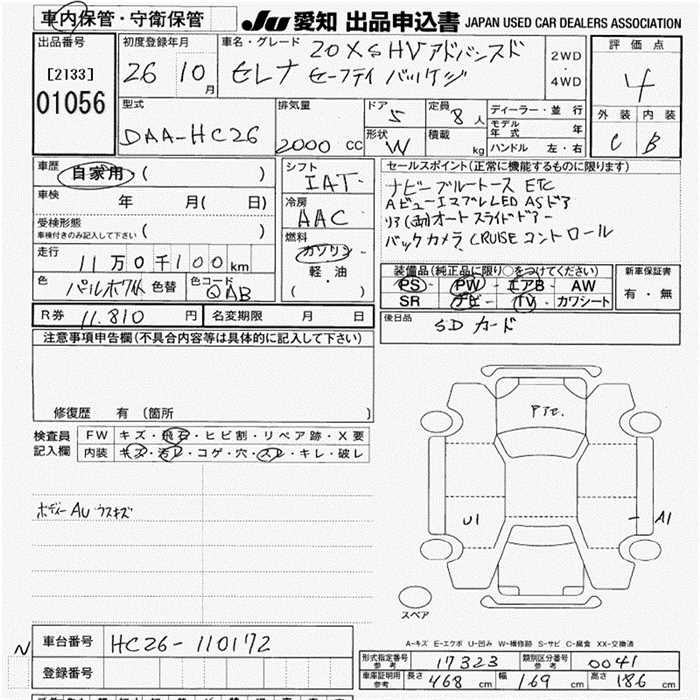 車内保管・守衛保管
JU 愛知 出品申込書 JAPAN USED CAR DEALERS ASSOCIATION
出品番号
[2133]
01056
初度登録年月
26 10月
車名・グレード
20X S HV アドバンスド
セレナ セーフティ パッケージ
2WD
・
4WD
評価点
4
外装 内装
C B
型式
DAA-HC26
排気量
2000 cc
ドア 5
形状 W
定員 8人
積載 kg
ディーラー・並行
モデル年式 年
ハンドル 左・右
車歴
自家用・( )
車検 年 月( 日)
受検形態
車検付きのみ記入して下さい ( )
走行
11万0千100km
色 パールホワイト 色替
色コード QAB
シフト
IAT
冷房
AAC
燃料
ガソリン
軽・油
( )
セールスポイント(正常に機能するものに限ります)
ナビ ブルートース ETC
Aビュー エマブレ LED ASドア
リア(両)オートスライドドア
バックカメラ CRUISEコントロール
装備品(純正品に限り○をつけてください)
PS・PW・エアB・AW
SR・ナビ・TV・カワシート
新車保証書
有・無
R券 11.810 円
名変期限 月 日
後日品
SDカード
注意事項申告欄(不具合内容等は具体的に記入して下さい)
修復歴 有(箇所 )
検査員
記入欄
FW キズ・飛石・ヒビ割・リペア跡・X要
内装 キズ・汚レ・コゲ・穴・スレ・キレ・破レ
ボディーAU ウスキズ
Pтc.
U1
A1
スペア
N
車台番号 HC26-110172
登録番号
A-キズ E-エクボ U-凹み W-補修跡 S-サビ C-腐食 XX-交換済
形式指定番号
参考 17323
類別区分番号
参考 0041
車庫証明用
参考 長さ 468 cm 幅 169 cm 高さ 186 cm